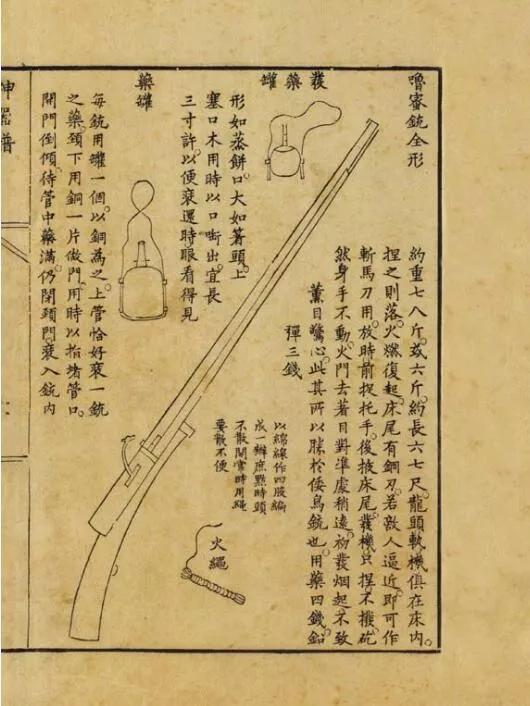 嚕密銃全形
約重七八斤。或六斤。約長六七尺。龍頭軌機俱在床内。
捏之則落。火燃復起。床尾有鋼刃。若敵人逼近。即可作
斬馬刀用。放時前捉托手。後掖床尾。發機只捏不撥。砣
然身手不動。火門去著目對準處稍遠。初發烟起。不致
薰目驚心。此其所以勝於倭鳥銃也。用藥四錢。鉛
彈三錢
以綿線作四股編
成一辮庶點時頭
不散開常時用繩
要散不便
火繩
發藥罐
形如蒸餅。口大如箸頭。上
塞口木。用時以口嚙出。宜長
三寸許。以便裹還時眼看得見
藥罐
每銃用罐一個。以銅為之。上管恰好裹一銃
之藥。頸下用銅一片做門。用時以指堵管口。
開門倒傾。待管中藥滿。仍閉頸門。裹入銃内
神器譜